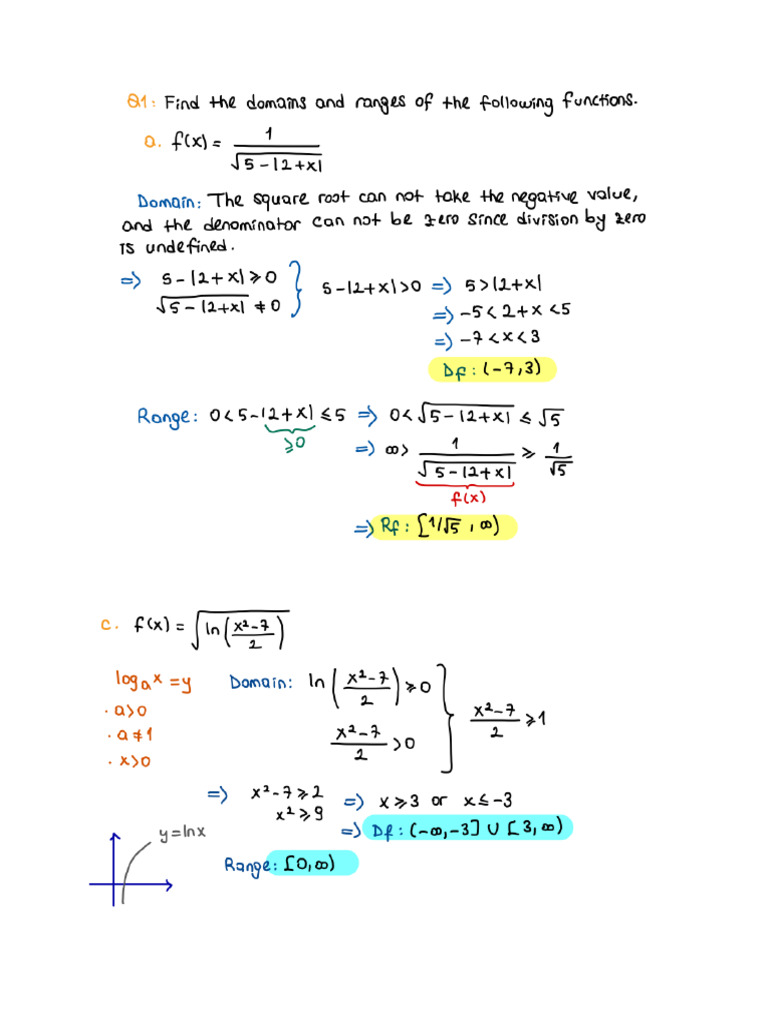 Q1: Find the domains and ranges of the following functions.
a. f(x) = 1 / √(5-|2+x|)
Domain: The square root can not take the negative value,
and the denominator can not be zero since division by zero
is undefined.
=> 5-|2+x| ⩾ 0
√(5-|2+x|) ≠ 0 } 5-|2+x| > 0 => 5 > |2+x|
=> -5 < 2+x < 5
=> -7 < x < 3
Df: (-7,3)
Range: 0 < 5-|2+x| ≤ 5 => 0 < √(5-|2+x|) ≤ √5
⩾0
=> ∞ > 1 / √(5-|2+x|) ⩾ 1/√5
f(x)
=> Rf: [1/√5, ∞)
c. f(x) = √(ln((x²-7)/2))
logₐx = y
· a>0
· a≠1
· x>0
Domain: ln((x²-7)/2) ⩾ 0
(x²-7)/2 > 0 } (x²-7)/2 ⩾ 1
=> x²-7 ⩾ 2
x² ⩾ 9 => x ⩾ 3 or x ≤ -3
=> Df: (-∞,-3] ∪ [3,∞)
y=lnx
Range: [0,∞)